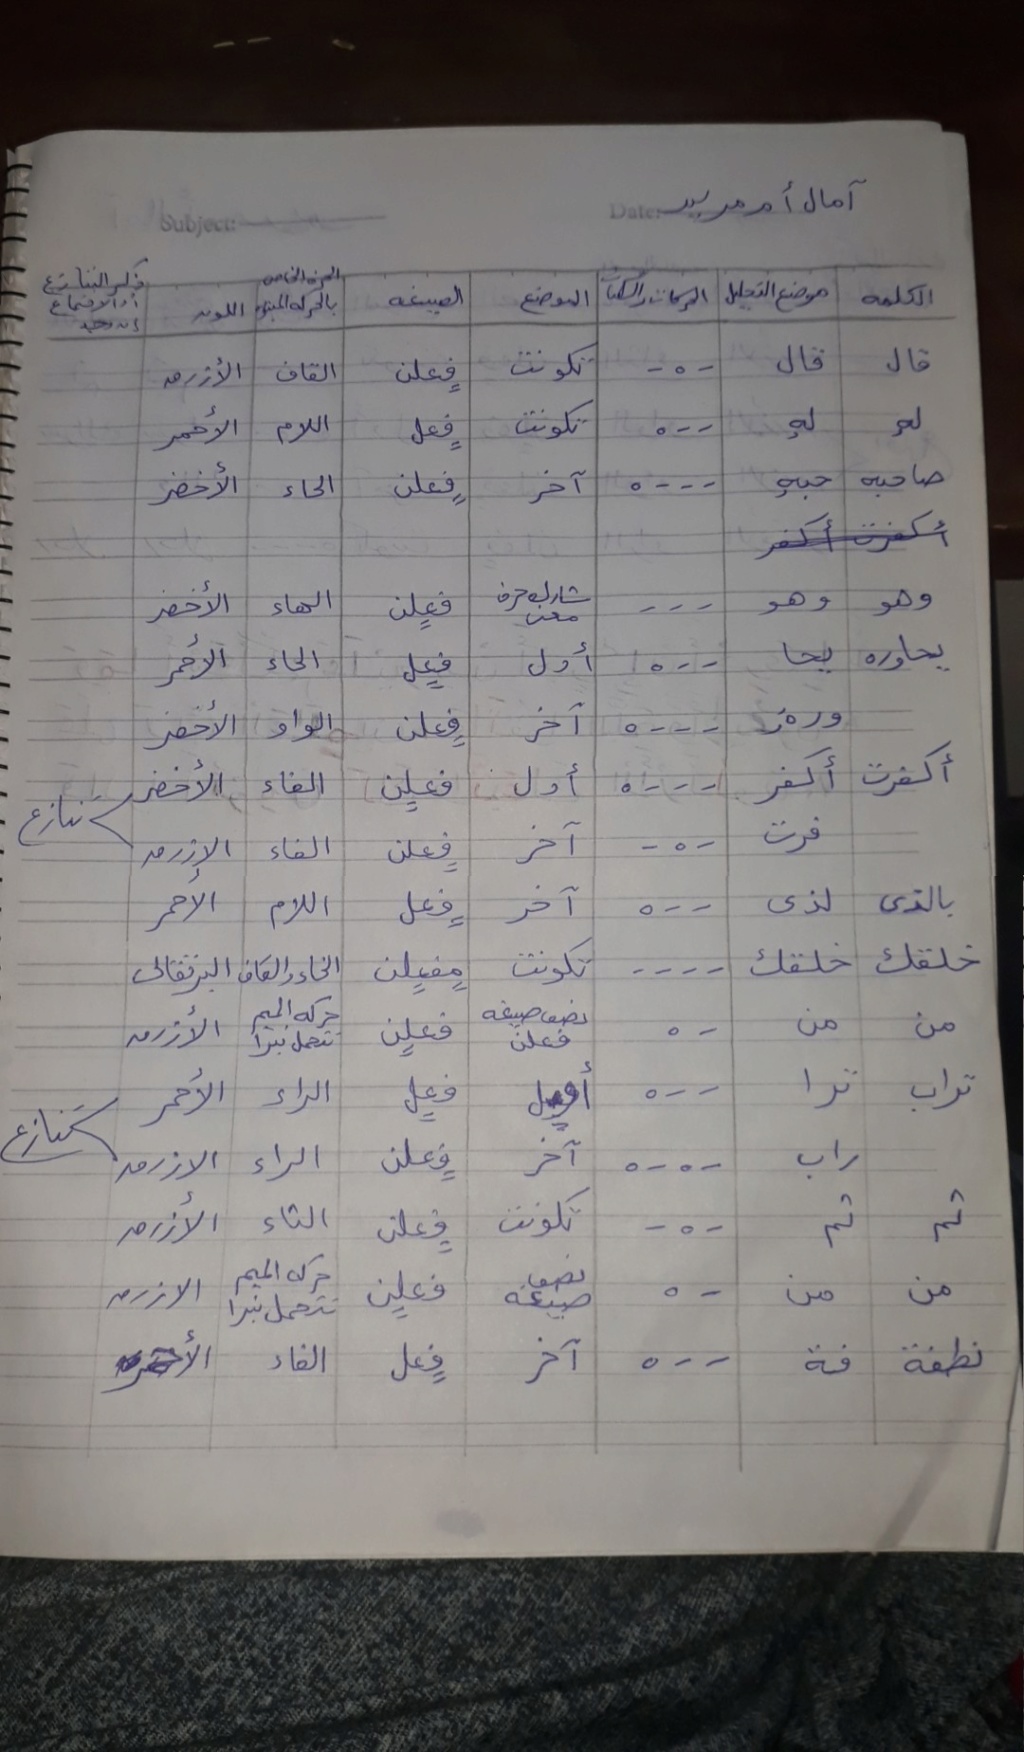 آمال أ
Subject:
Date:
الكلمه موضع التحليل الحركات والسكنات الموضع الصيغه الحرف الخاص بالحركة اللون ذكر التنازع أو الاجتماع إن وجد
قال قال -ه- تكونت فعلن القاف الأزرق
له له --ه تكونت فعل اللام الأحمر
صاحبه حبه ---ه آخر فعلن الحاء الأخضر
أكفرت أكفر
وهو وهو --- شارك حرف معنى فعلن الهاء الأخضر
يحاوره يحا --ه أول فعل الحاء الأحمر
وره ---ه آخر فعلن الواو الأخضر
أكفرت أكفر ---ه أول فعلن الفاء الأخضر تنازع
فرت -ه- آخر فعلن الفاء الازرق
بالذى لذى --ه آخر فعل اللام الأحمر
خلقك خلقك ---- تكونت مفعلن الخاء والقاف البرتقالى
من من -ه نصف صيغه فعلن فعلن حركه الميم تتحمل نبرا الأزرق
تراب ترا --ه أول فعل الراء الأحمر تنازع
راب -ه-ه آخر فعلن الراء الازرق
ثم ثم -ه- تكونت فعلن الثاء الأزرق
من من -ه نصف صيغه فعلن حركه الميم تتحمل نبرا الازرق
نطفة فة --ه آخر فعل الفاء الأحمر